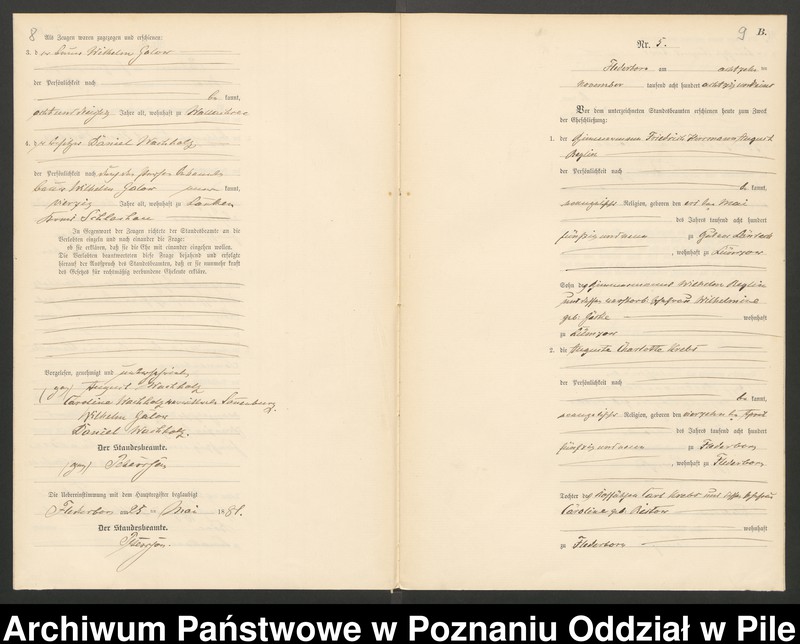 8
Als Zeugen waren zugezogen und erschienen:
3. der Bauer Wilhelm Galow
der Persönlichkeit nach
be kannt,
acht und dreißig Jahre alt, wohnhaft zu
4. der Besitzer Daniel Wachholz
der Persönlichkeit nach durch den
Bauer Wilhelm Galow kannt,
vierzig Jahre alt, wohnhaft zu
Kreis Schlochau
In Gegenwart der Zeugen richtete der Standesbeamte an die
Verlobten einzeln und nach einander die Frage:
ob sie erklären, daß sie die Ehe mit einander eingehen wollen.
Die Verlobten beantworteten diese Frage bejahend und erfolgte
hierauf der Ausspruch des Standesbeamten, daß er sie nunmehr kraft
des Gesetzes für rechtmäßig verbundene Eheleute erkläre.
Vorgelesen, genehmigt und unterschrieben
(gez) August Wachholz
Caroline Wachholz
Wilhelm Galow
Daniel Wachholz.
Der Standesbeamte.
(gez)
Die Uebereinstimmung mit dem Hauptregister beglaubigt
Flederborn am 25 ten Mai 1881.
Der Standesbeamte.
9 B.
Nr. 5.
Flederborn am achtzehn ten
November tausend acht hundert achtzig und eins
Vor dem unterzeichneten Standesbeamten erschienen heute zum Zweck
der Eheschließung:
1. der Zimmermann Friedrich Hermann August
Reglin
der Persönlichkeit nach
be kannt,
evangelischer Religion, geboren den acht ten Mai
des Jahres tausend acht hundert
fünfzig und neun zu
, wohnhaft zu Lümzow
Sohn des Zimmermanns Wilhelm Reglin
und dessen verstorb. Ehefrau Wilhelmine
geb. wohnhaft
zu Lümzow
2. die Augusta Charlotte Krebs
der Persönlichkeit nach
be kannt,
evangelischer Religion, geboren den vierzehn ten April
des Jahres tausend acht hundert
fünfzig und neun zu Flederborn
, wohnhaft zu Flederborn
Tochter des Kossäthen Carl Krebs und dessen Ehefrau
Caroline geb.
wohnhaft
zu Flederborn
Archiwum Państwowe w Poznaniu Oddział w Pile